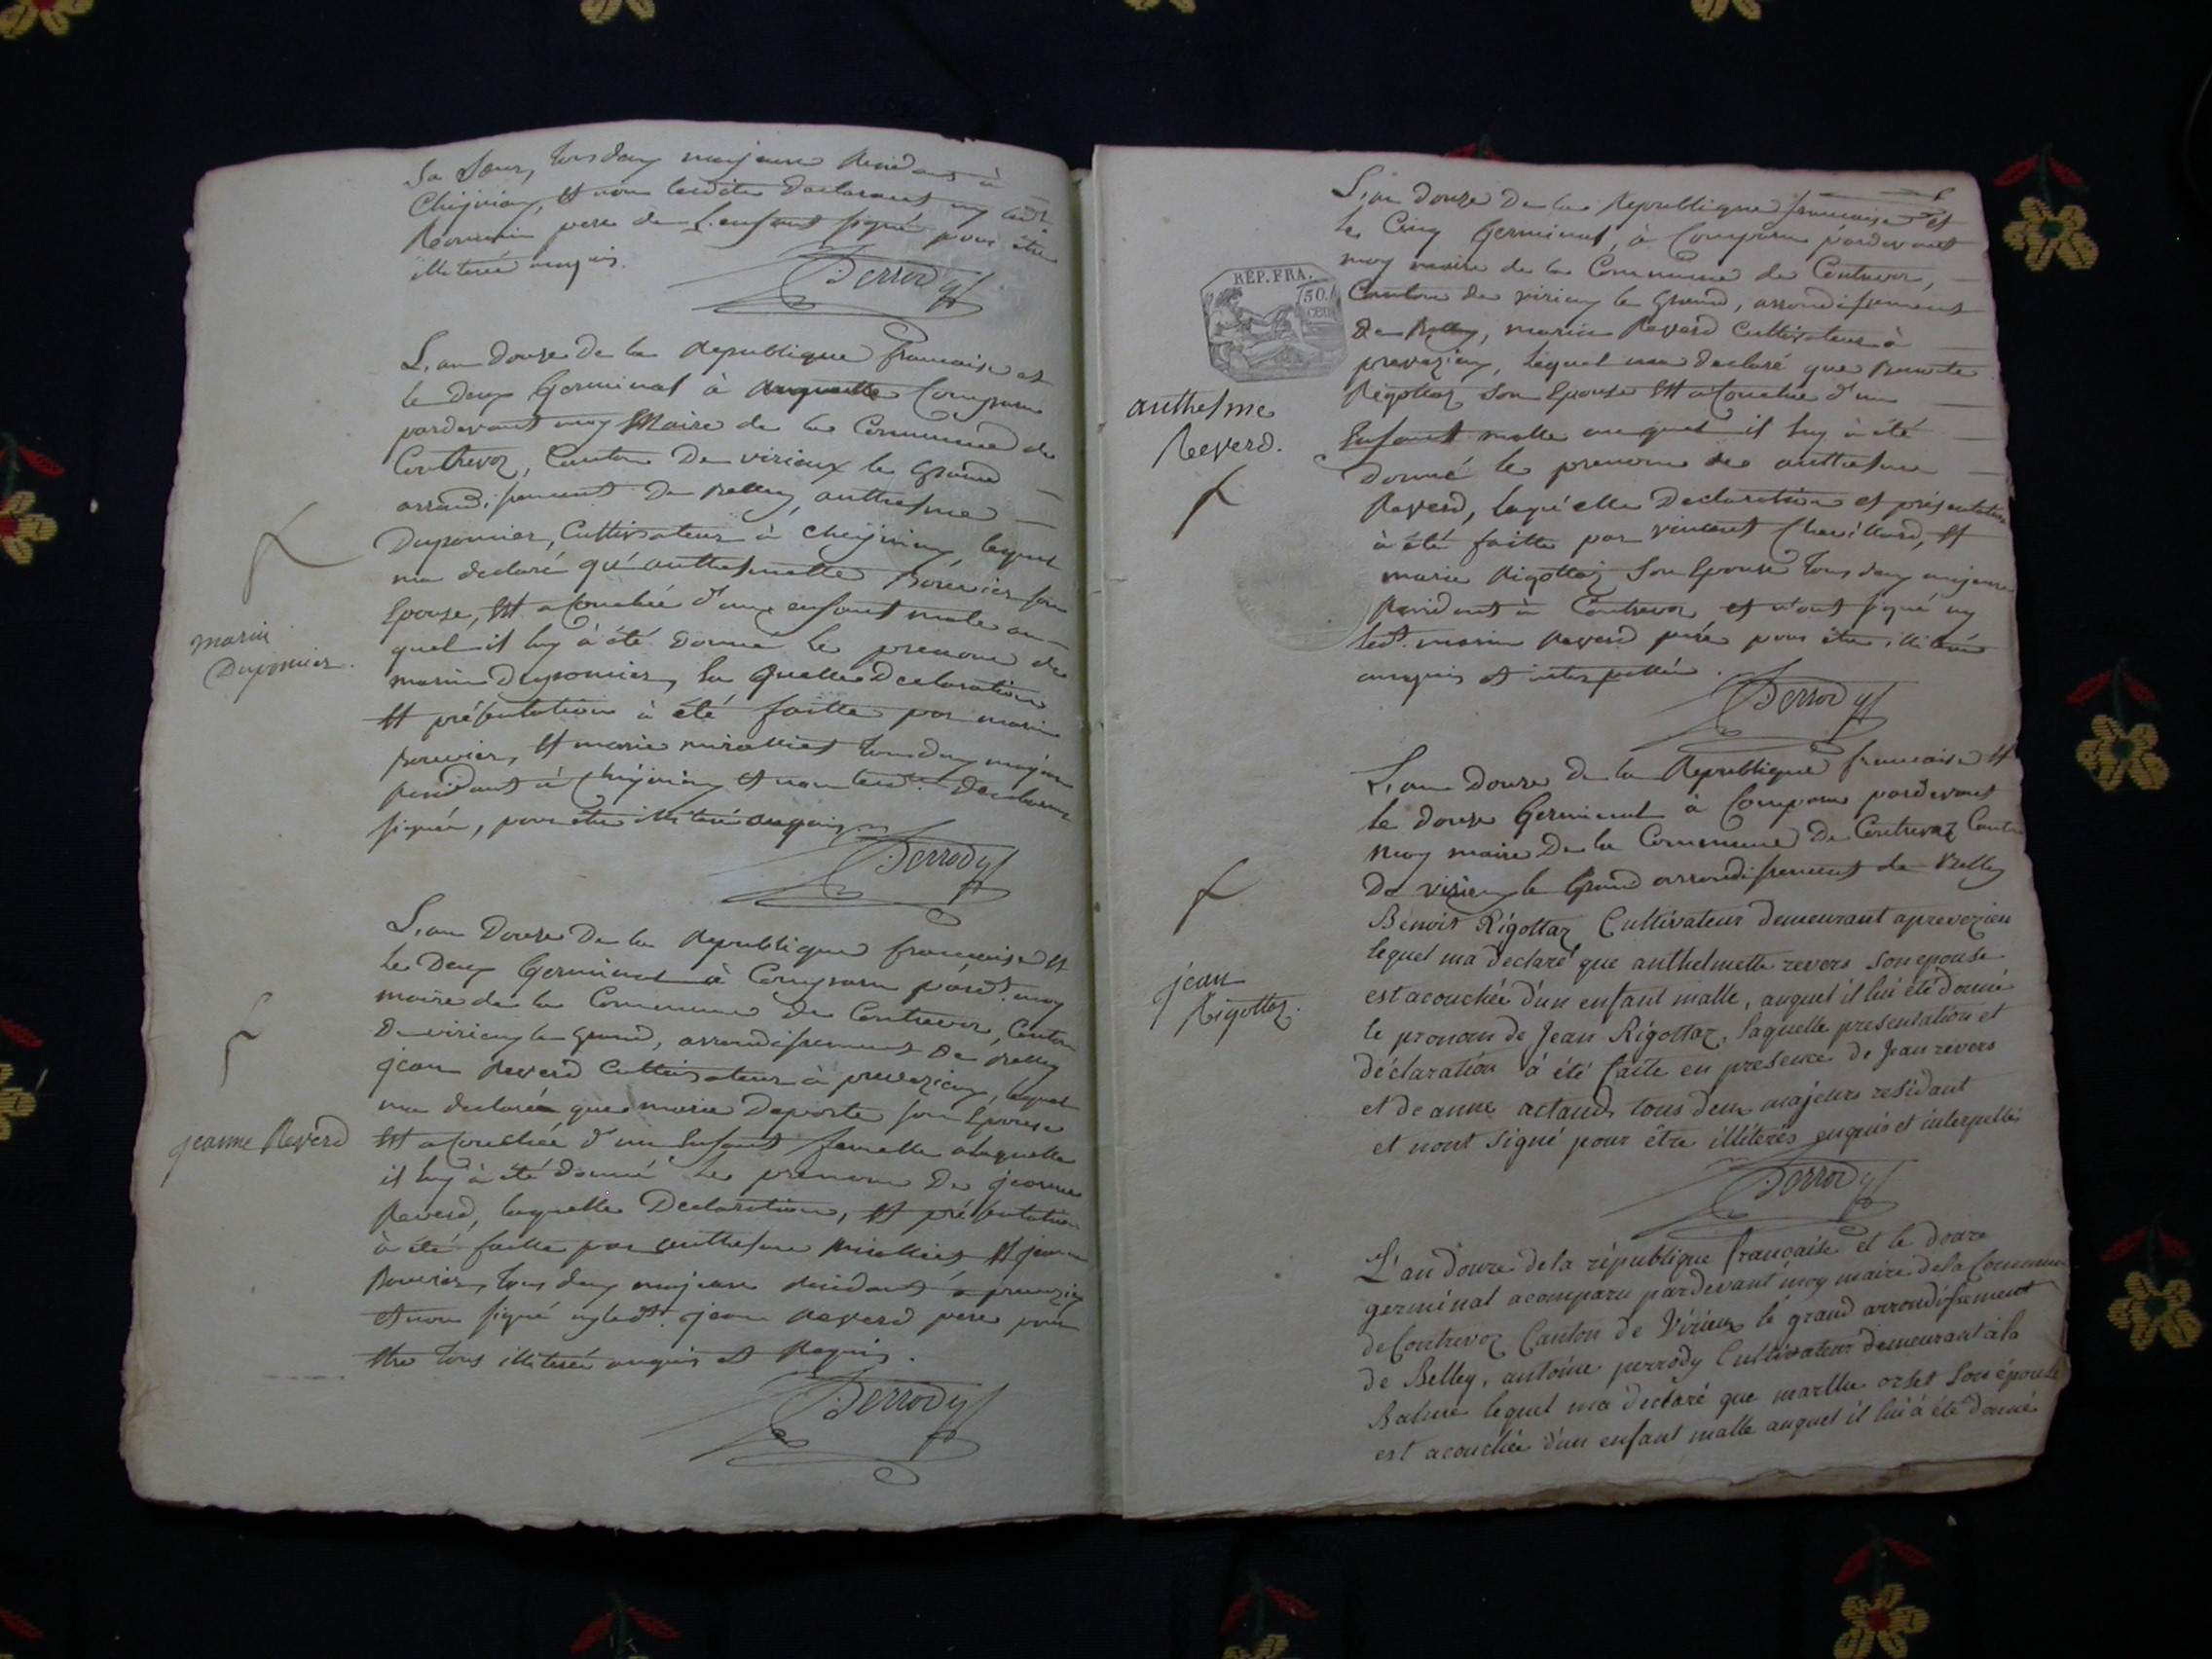 Sa Sœur, tous deux majeurs Residans à
Chijnieu, et non lesdits declarants ny ledt
pere de L'enfant signé pour être
illiteré enquis.
Perrody
L'an Douze De la Republique francaise et
le deux Germinal à Comparu
pardevant moy Maire de la Commune de
Contrevoz, Canton De virieux le Grand
arrondissement De Belley, anthelme
Duponnier, Cultivateur à Chijnieu lequel
ma declaré qu'anthelmette Bouvier son
Epouse, Est acouchée d'un enfant male au
quel il luy à été Donné Le prenom de
marin Duponnier, La Quelle Declaration
Et présentation à été faitte par marin
Bouvier, Et marie tous deux majeurs
Residants à Chijnieu et non lesdt. Declarants
signés, pour être illiteré enquis.
Perrody
marin
Duponnier.
L'an Douze De la Republique francaise Et
le Deux Germinal à Comparu pardt. moy
maire de la Commune De Contrevoz, Canton
De virieu le Grand, arrondissement De Belley
jean Reverd Cultivateur à prevezieu, lequel
ma declaré que marie Deporte son Epouse
Est acouchée d'un Enfant femelle a laquelle
il luy à été donné Le prenom De jeanne
Reverd, laquelle Declaration, Et présentation
à été faitte par anthelme Et jeanne
Bouvier, tous deux majeurs Residants à prevezieu
et non signé ny ledt. jean Reverd pere pour
Etre tous illiteré enquis et Requis.
Perrody
jeanne Reverd
REP. FRA.
50.
CEN
L'an Douze De la Republique francaise et
le Cinq Germinal, à Comparu pardevant
moy maire de la Commune de Contrevoz,
Canton de virieu le Grand, arrondissement
De Belley, marin Reverd Cultivateur à
prevezieu, Lequel ma declaré que Benoite
Rigottaz son Epouse Est acouchée d'un
Enfant malle auquel il luy à été
Donné le prenom de anthelme
Reverd, laqu'elle Declaration et présentation
à été faitte par vincent Chevillard, Et
marie Rigottaz Son Epouse tous deux majeurs
Residants à Contrevoz et n'ont signé ny
ledt. marin Reverd père pour être illiteré
enquis et interpellé.
Perrody
anthelme
Reverd.
L'an Douze De la Republique francaise Et
le douze Germinal à Comparu pardevant
moy maire De la Commune De Contrevoz Canton
De virieu le Grand arrondissement de Belley
Benoit Rigottaz Cultivateur demeurant aprevezieu
lequel ma declaré que anthelmette revers son epouse
est acouchée d'un enfant malle, auquel il lui été donné
le pronom de Jean Rigottaz, laquelle presentation et
déclaration à été faite en presence de Jean revers
et de anne actand tous deux majeurs residant
et nont signé pour être illiterés enquis et interpellés
Perrody
jean
Rigottaz.
L'an douze de la république francaise et le douze
germinal acomparu pardevant moy maire de la Commune
de Contrevoz Canton de Virieux le grand arrondissement
de Belley, antoine perrody Cultivateur demeurant à la
Balme lequel ma declaré que marthe orset son épouse
est acouchée d'un enfant malle auquel il lui à été donné